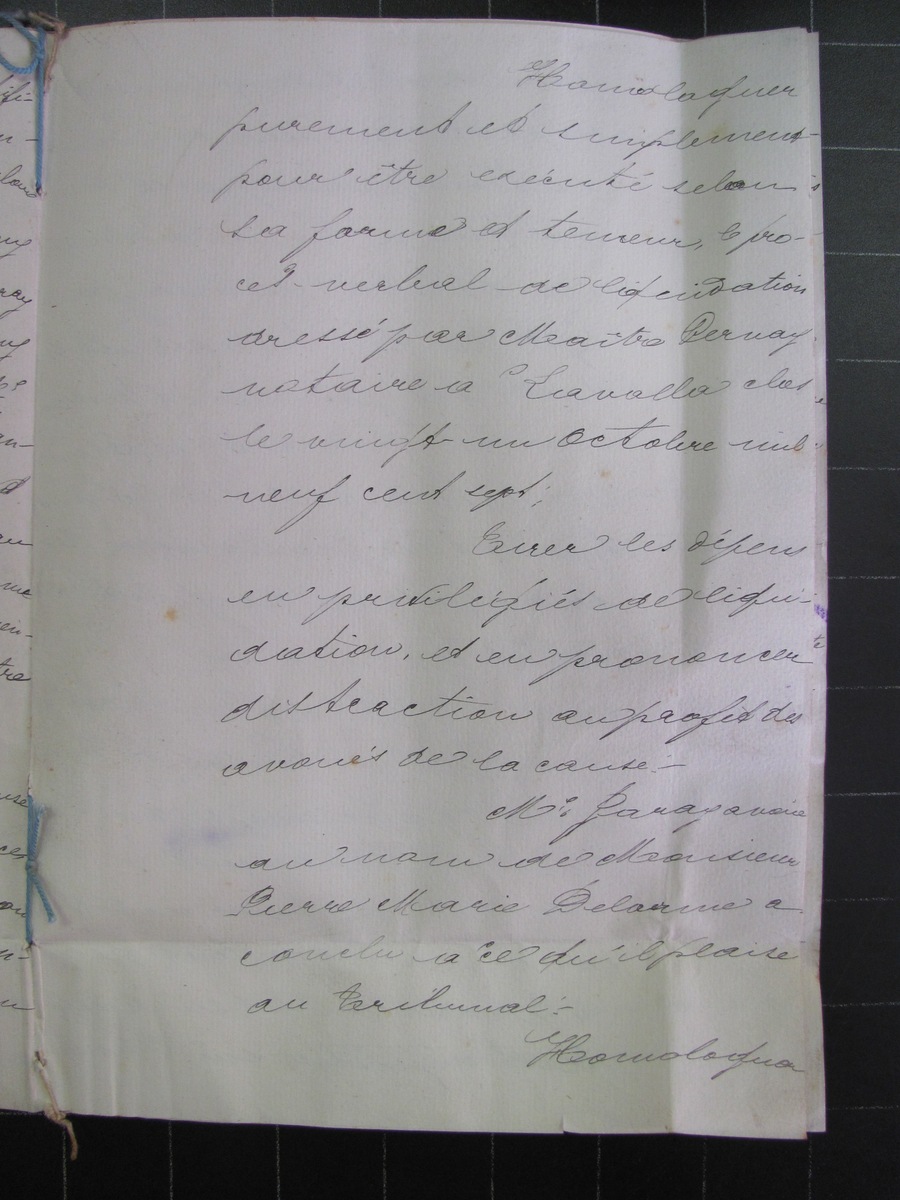 Homologuer
purement et simplement
pour être exécuté selon
sa forme et teneur, le pro-
cès-verbal de liquidation
dressé par Maître Pernay
notaire à Lavalla clos
le vingt-un Octobre mil
neuf cent sept;
Tirer les dépens
en privilégiés de liqui-
dation, et en prononcer
distraction au profit des
avoués de la cause.-
Me avoué
au nom de Monsieur
Pierre Marie Delorme a
conclu à ce qu'il plaise
au tribunal:-
Homologuer